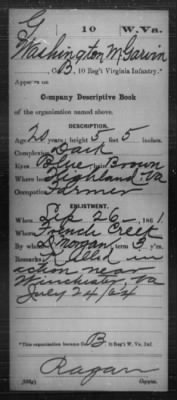 G 10 W. Va.
Washington McGarvin
Co. B, 10 Reg't Virginia Infantry.*
Appears on
Company Descriptive Book
of the organization named above.
DESCRIPTION.
Age 20 years; height 5 feet 5 inches.
Complexion Dark
Eyes Blue; hair Brown
Where born Highland, Va
Occupation Farmer
ENLISTMENT.
When Sep 26, 1861.
Where French Creek
By whom L. Morgan; term 3 y'rs.
Remarks: Killed in
action near
Winchester, Va
July 24/64
*This organization became Co. B, 10 Reg't W. Va. Inf.
Ragan
Copyist.